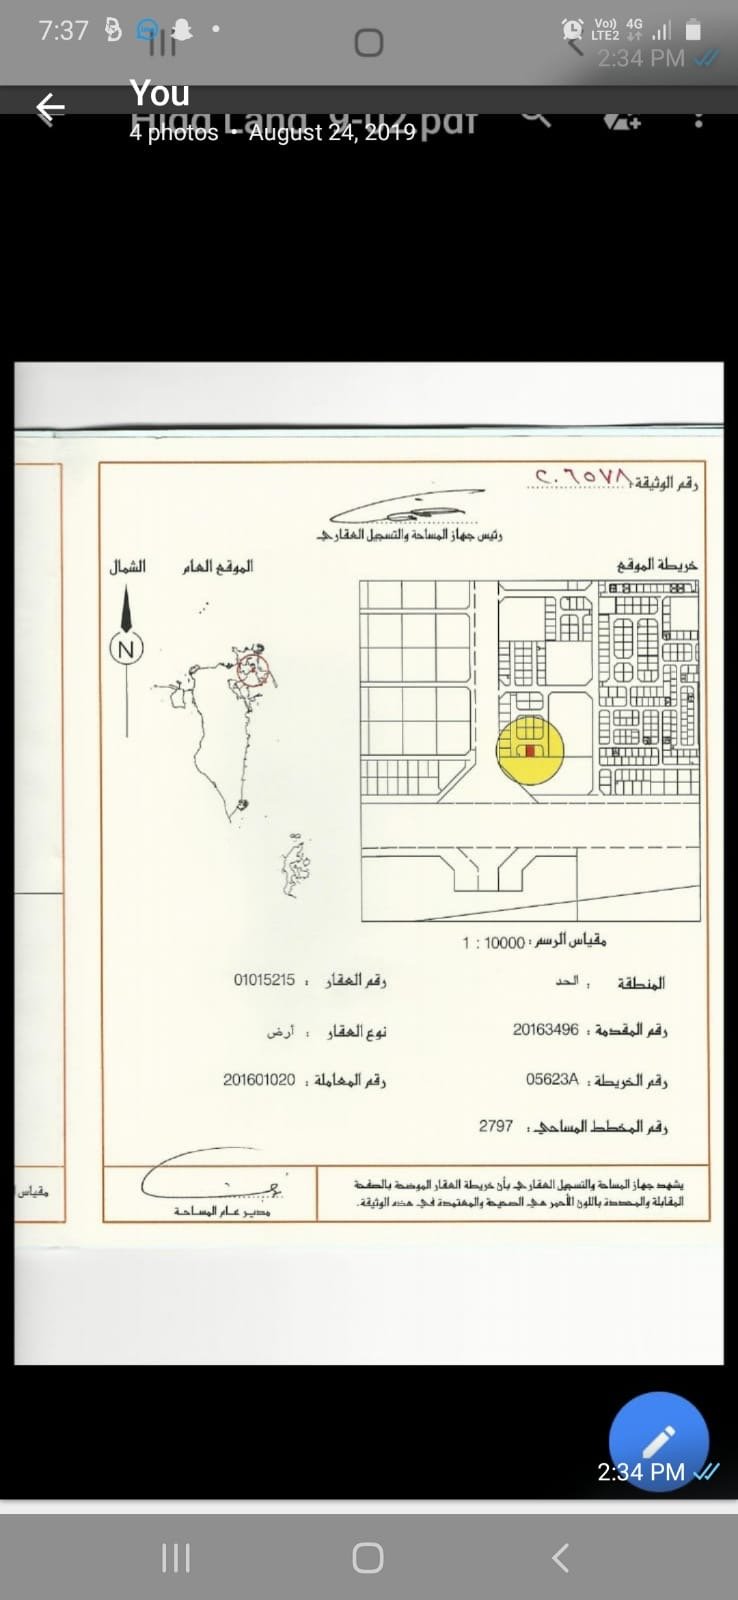 7:37
Vo)) 4G
LTE2
2:34 PM
You
Hidd Land 9-02.pdf
4 photos • August 24, 2019
رقم الوثيقة:
رئيس جهاز المساحة والتسجيل العقاري
خريطة الموقع
الموقع العام
الشمال
N
مقياس الرسم : 10000 : 1
المنطقة : الحد
رقم العقار : 01015215
رقم المقدمة : 20163496
نوع العقار : أرض
رقم الخريطة : 05623A
رقم المعاملة : 201601020
رقم المخطط المساحي : 2797
يشهد جهاز المساحة والتسجيل العقاري بأن خريطة العقار الموضحة بالصفحة
المقابلة والمحددة باللون الأحمر هي الصحيحة والمعتمدة في هذه الوثيقة.
مدير عام المساحة
مقياس
2:34 PM